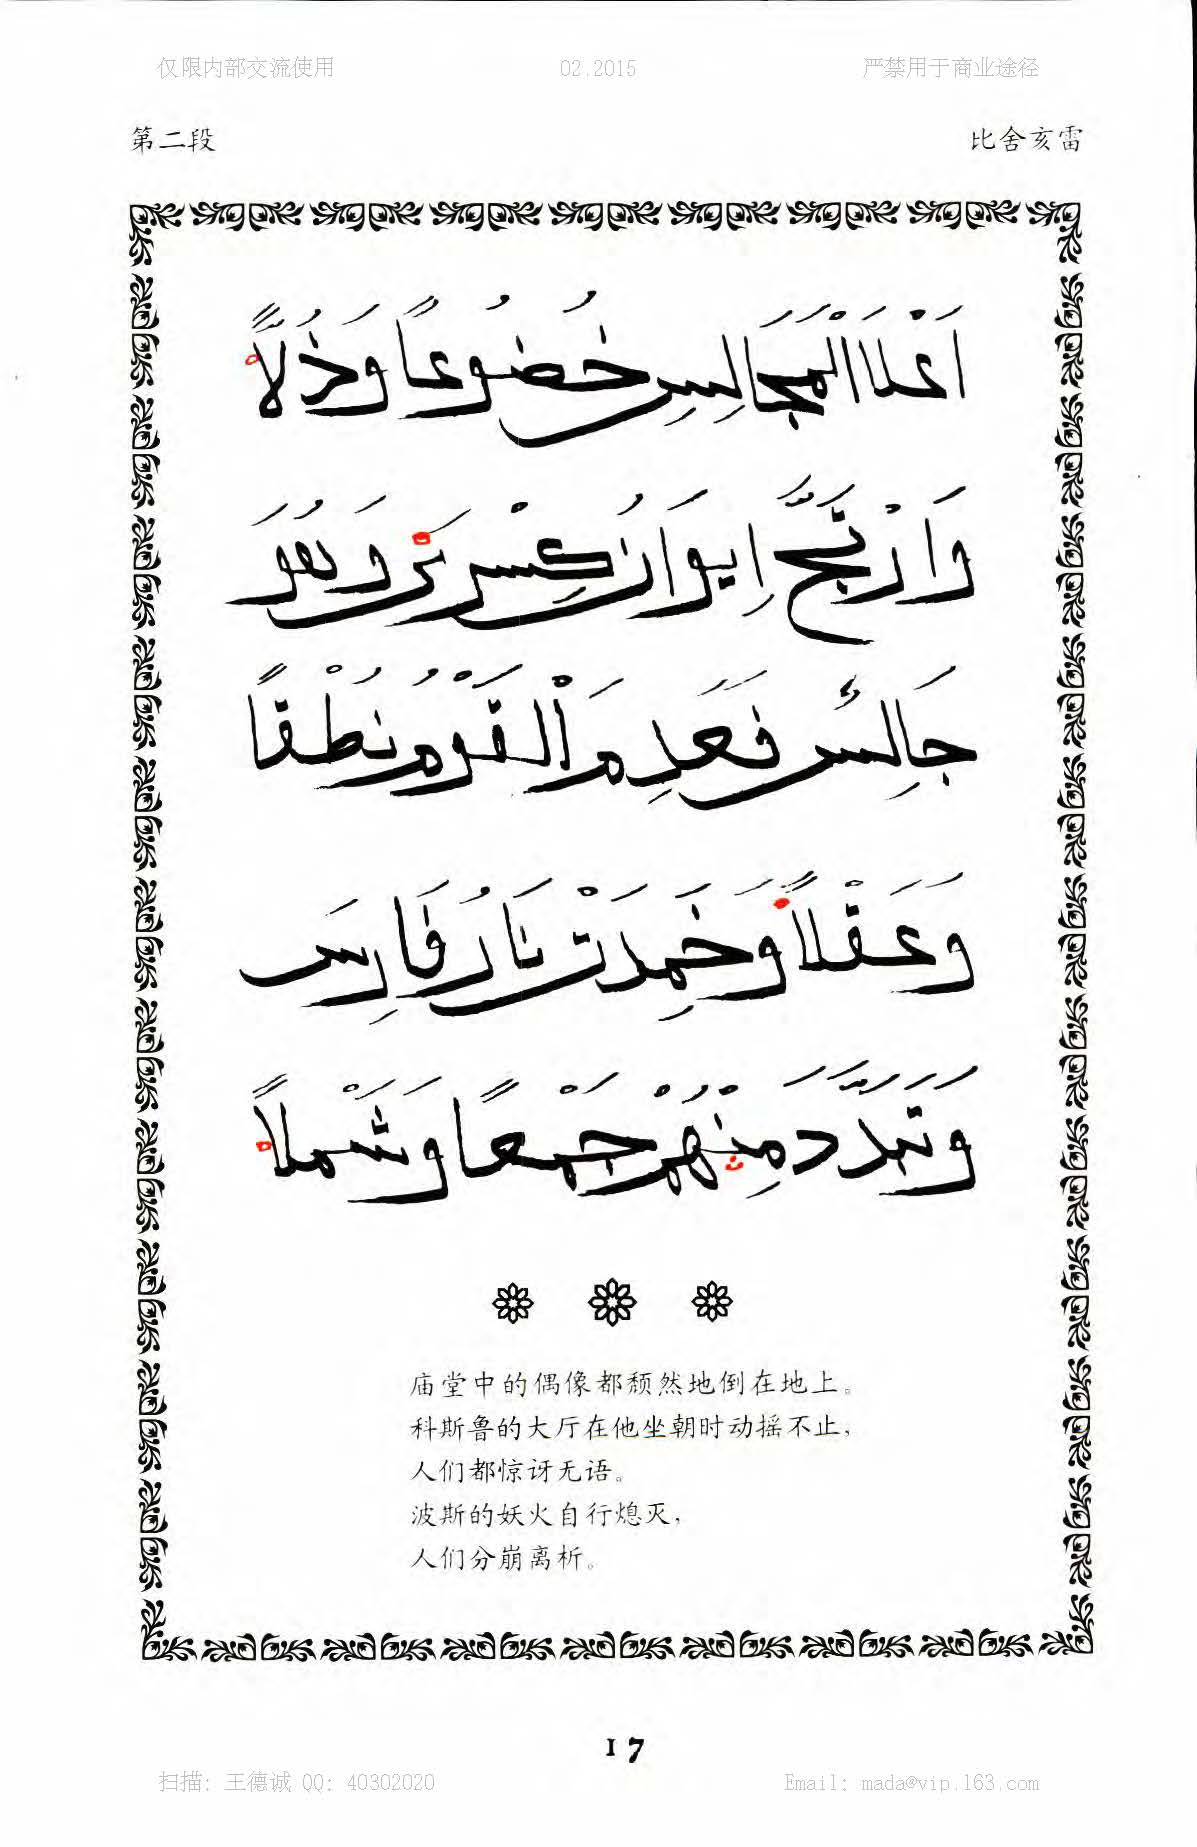 仅限内部交流使用 02.2015 严禁用于商业途径
第二段 比舍亥雷
اَعْلَا الْمَجَالِسِ خُضُوعًا وَذُلًّا
وَارْتَجَّ اِيوَانُ كِسْرَىٰ وَهُوَ
جَالِسٌ فَعَدِمَ الْقَوْمُ نُطْقًا
وَعَقْلًا وَخَمِدَتْ نَارُ فَارِسَ
وَتَبَدَّدَ مِنْهُمْ جَمْعًا وَشَمْلًا
庙堂中的偶像都颓然地倒在地上。
科斯鲁的大厅在他坐朝时动摇不止，
人们都惊讶无语。
波斯的妖火自行熄灭，
人们分崩离析。
17
扫描: 王德诚 QQ: 40302020 Email: mada@vip.163.com